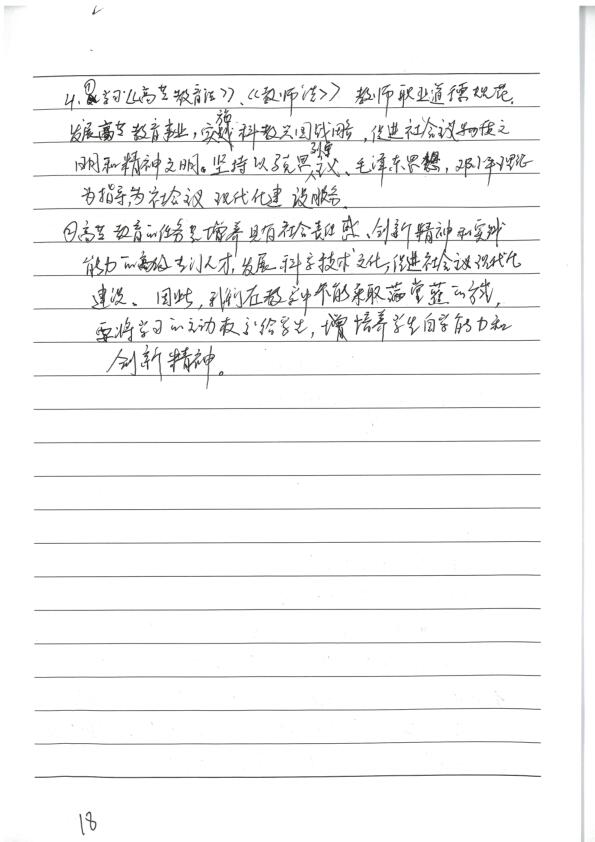 4. ①学习《高等教育法》、《教师法》 教师职业道德规范.
发展高等教育事业，实施科教兴国战略，促进社会主义物质文
明和精神文明。坚持以马克思列宁主义、毛泽东思想，邓小平理论
为指导，为社会主义现代化建设服务.
②高等教育的任务是培养具有社会责任感、创新精神和实践
能力的高级专门人才，发展科学技术文化，促进社会主义现代化
建设。因此，我们在教学中不能采取满堂灌的方式，
要将学习的主动权交给学生，培养学生自学能力和
创新精神。
18